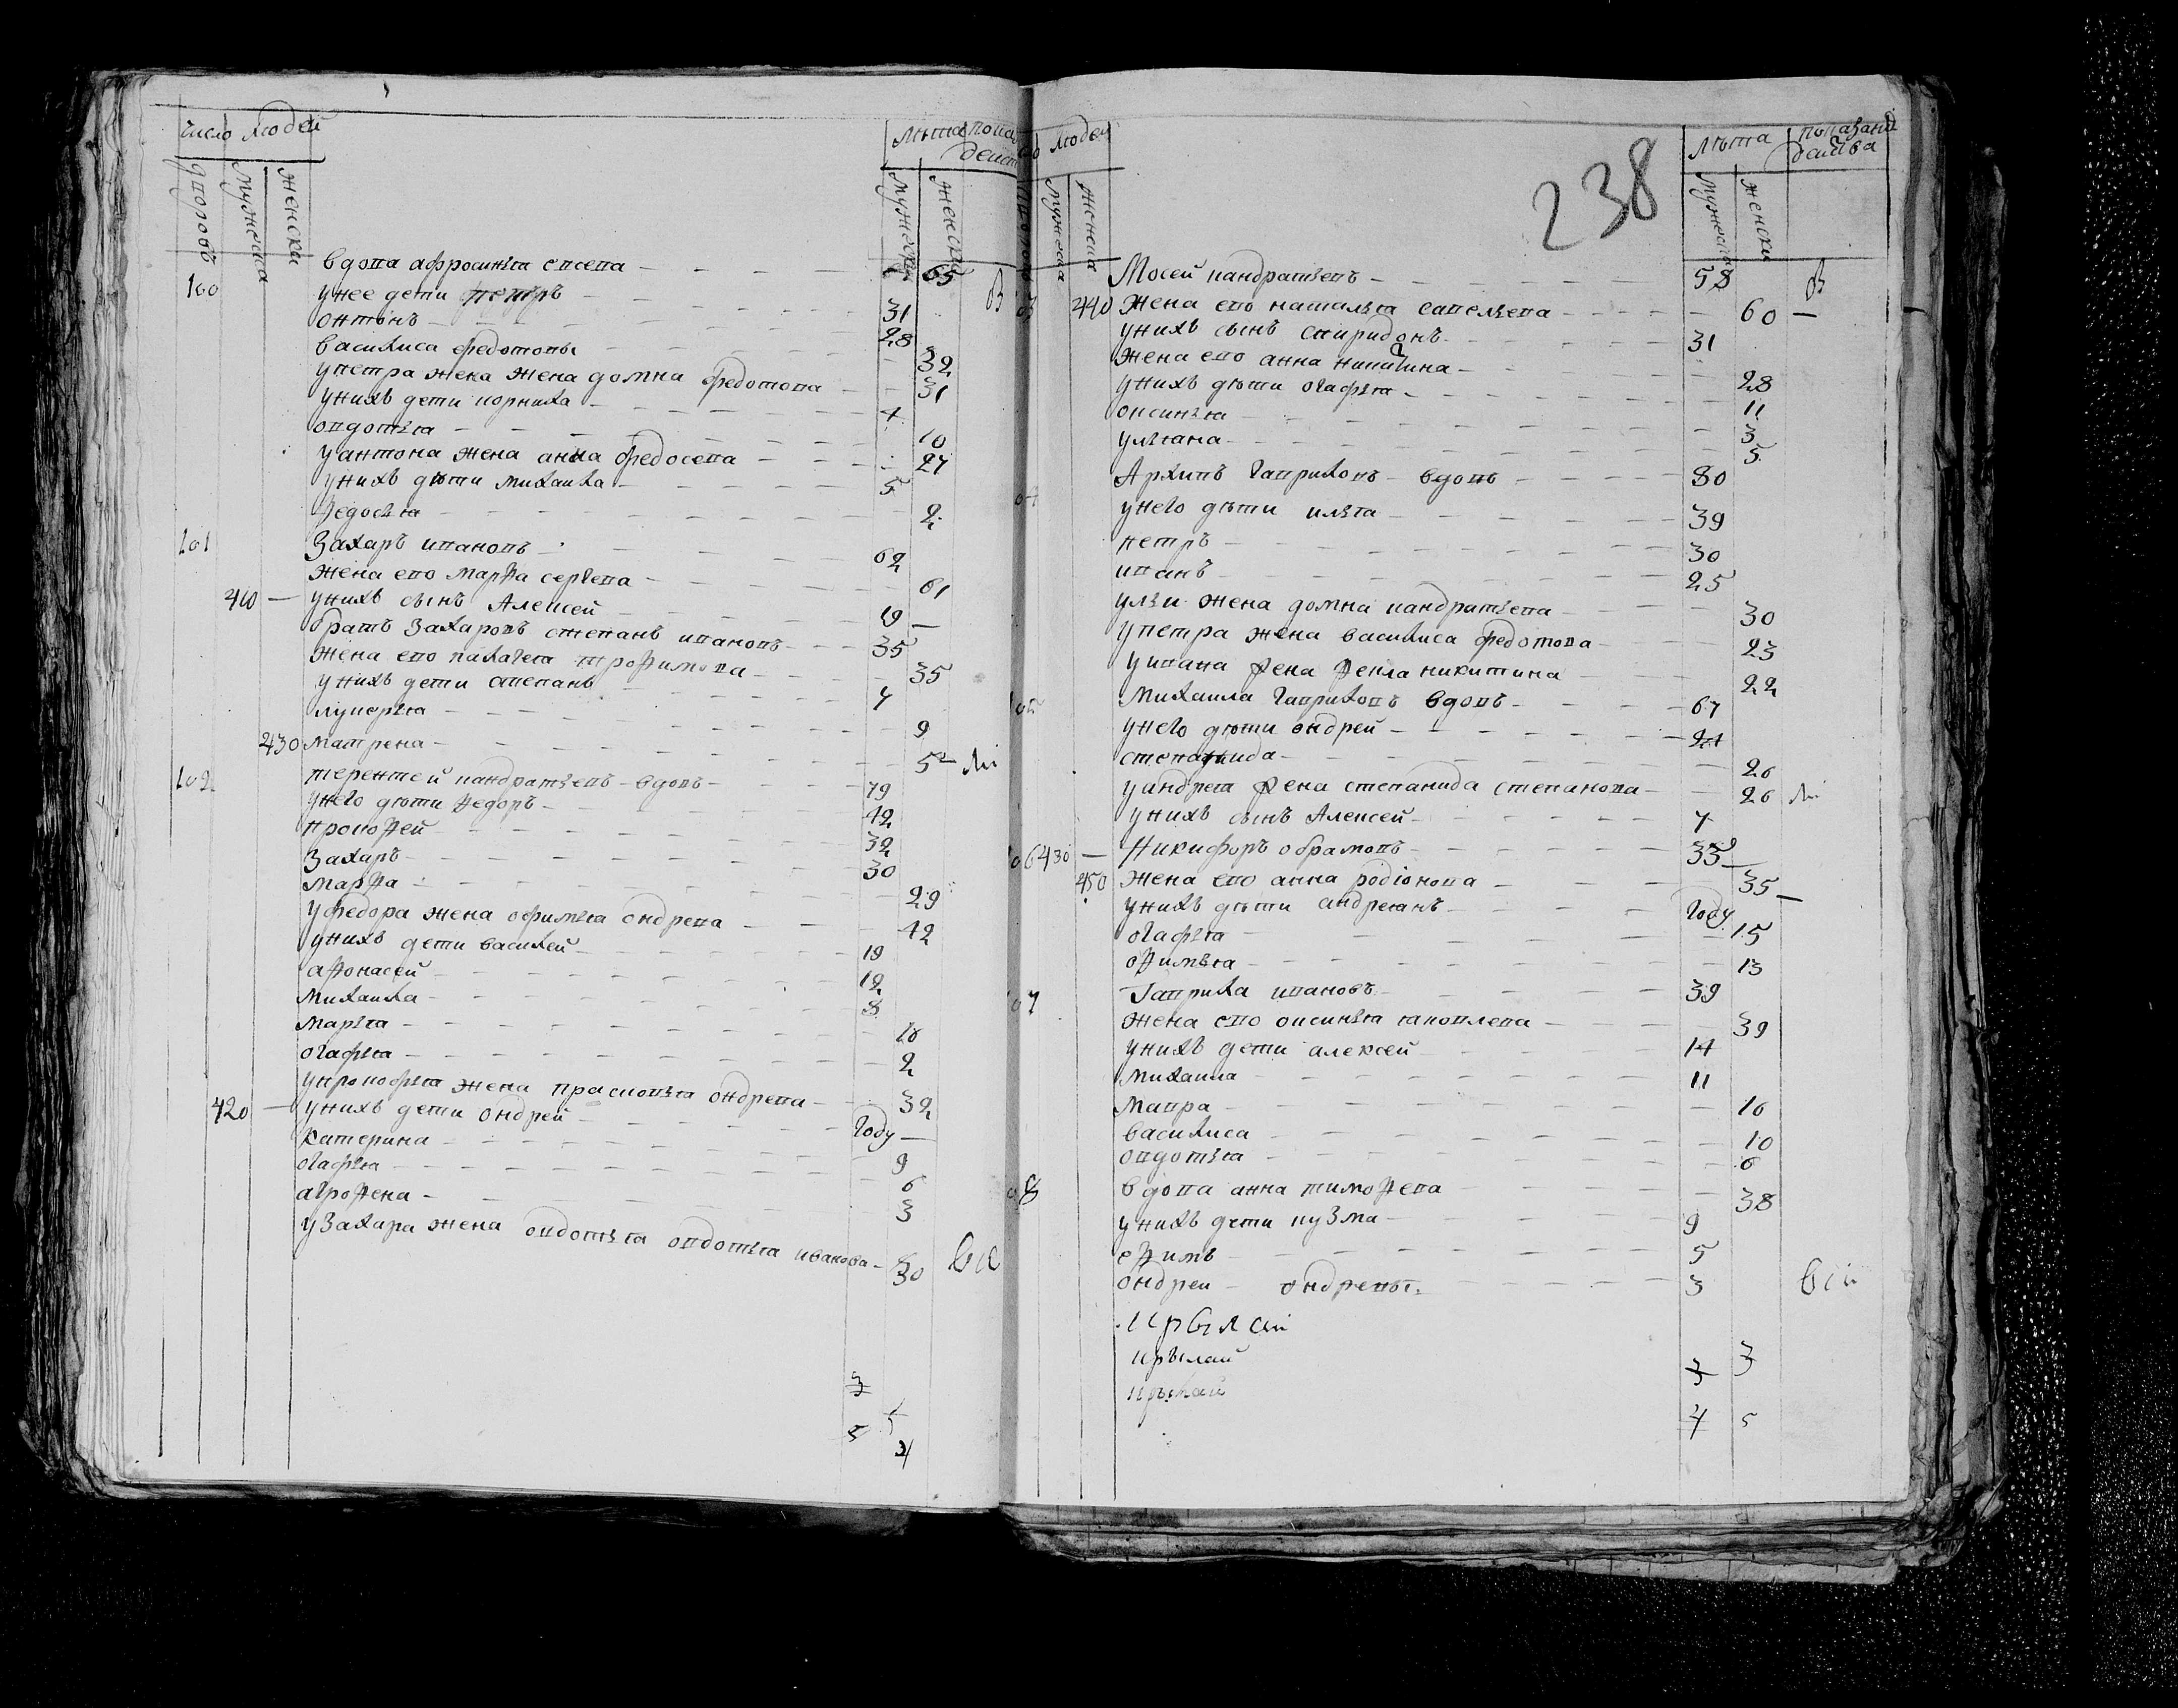 число людей
дворовъ
мужеска
женски
лѣта
мужески
женски
вдова афросинья евсева 65
100 у нее дети петръ 31
онтонъ 28
василиса федотовы 32
у петра жена жена домна федотова 31
у нихъ дети корнила 4
овдотья 10
у антона жена анна федосева 27
у нихъ дѣти михаила 5
федосья 2
101 Захаръ ивановъ 62
жена ево марфа сергева 61
410 — у нихъ сынъ Алексей 19 —
братъ Захаровъ степанъ ивановъ 35
жена ево палагея трофимова 35
у нихъ дети степанъ 7
лукерья 9
430 матрена 5 —
102 терентей кандратьевъ вдовъ 79
у него дѣти федоръ 42
прокофей 32
Захаръ 30
марфа 29
у федора жена офимья ондрева 42
у нихъ дети василей 18
афонасей 12
михаила 8
марья 16
огафья 2
у прокофья жена прасковья ондрева 32
420 — у нихъ дети ондрей году —
катерина 9
огафья 6
агрофена 3
у Захара жена овдотья овдотья иванова 30
3
5
4
людей
мужеска
женска
238
лѣта
показани действа
мужеска
женски
Мосей кандратьевъ 58 В
440 жена ево наталья савельева 60 —
у нихъ сынъ спиридонъ 31
жена ево анна никитина 28
у нихъ дѣти огафья 11
оксинья 3
ульяна 5
Архипъ гавриловъ вдовъ 80
у него дѣти илья 39
петръ 30
иванъ 25
у ильи жена домна кандратьева 30
у петра жена василиса федотова 23
у ивана жена фекла никитина 22
михаила гавриловъ вдовъ 67
у него дѣти ондрей 24
степанида 26
у андрея жена степанида степанова 26
у нихъ сынъ Алексей 7
06 430 — Никифоръ обрамовъ 33 —
450 жена ево анна родіонова 35 —
у нихъ дѣти андреянъ году
огафья 15
офимья 13
07 Гаврила ивановъ 39
жена ево оксинья яковлева 39
у нихъ дети алексей 14
михаила 11
мавра 16
василиса 10
овдотья 6
08 вдова анна тимофева 38
у нихъ дети кузма 9
ефимъ 5
ондреи ондревы 3
3 3
7 5